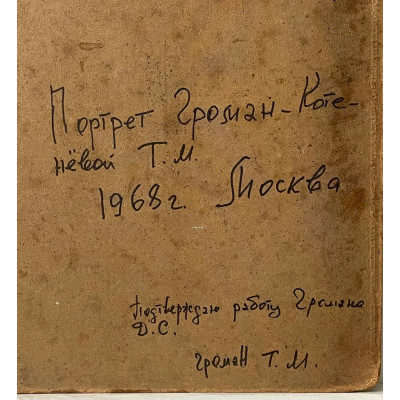 Портрет Громан-Коте-
нёвой Т.М.
1968г. Москва
Подтверждаю работу Громана
Д.С.
Громан Т.М.